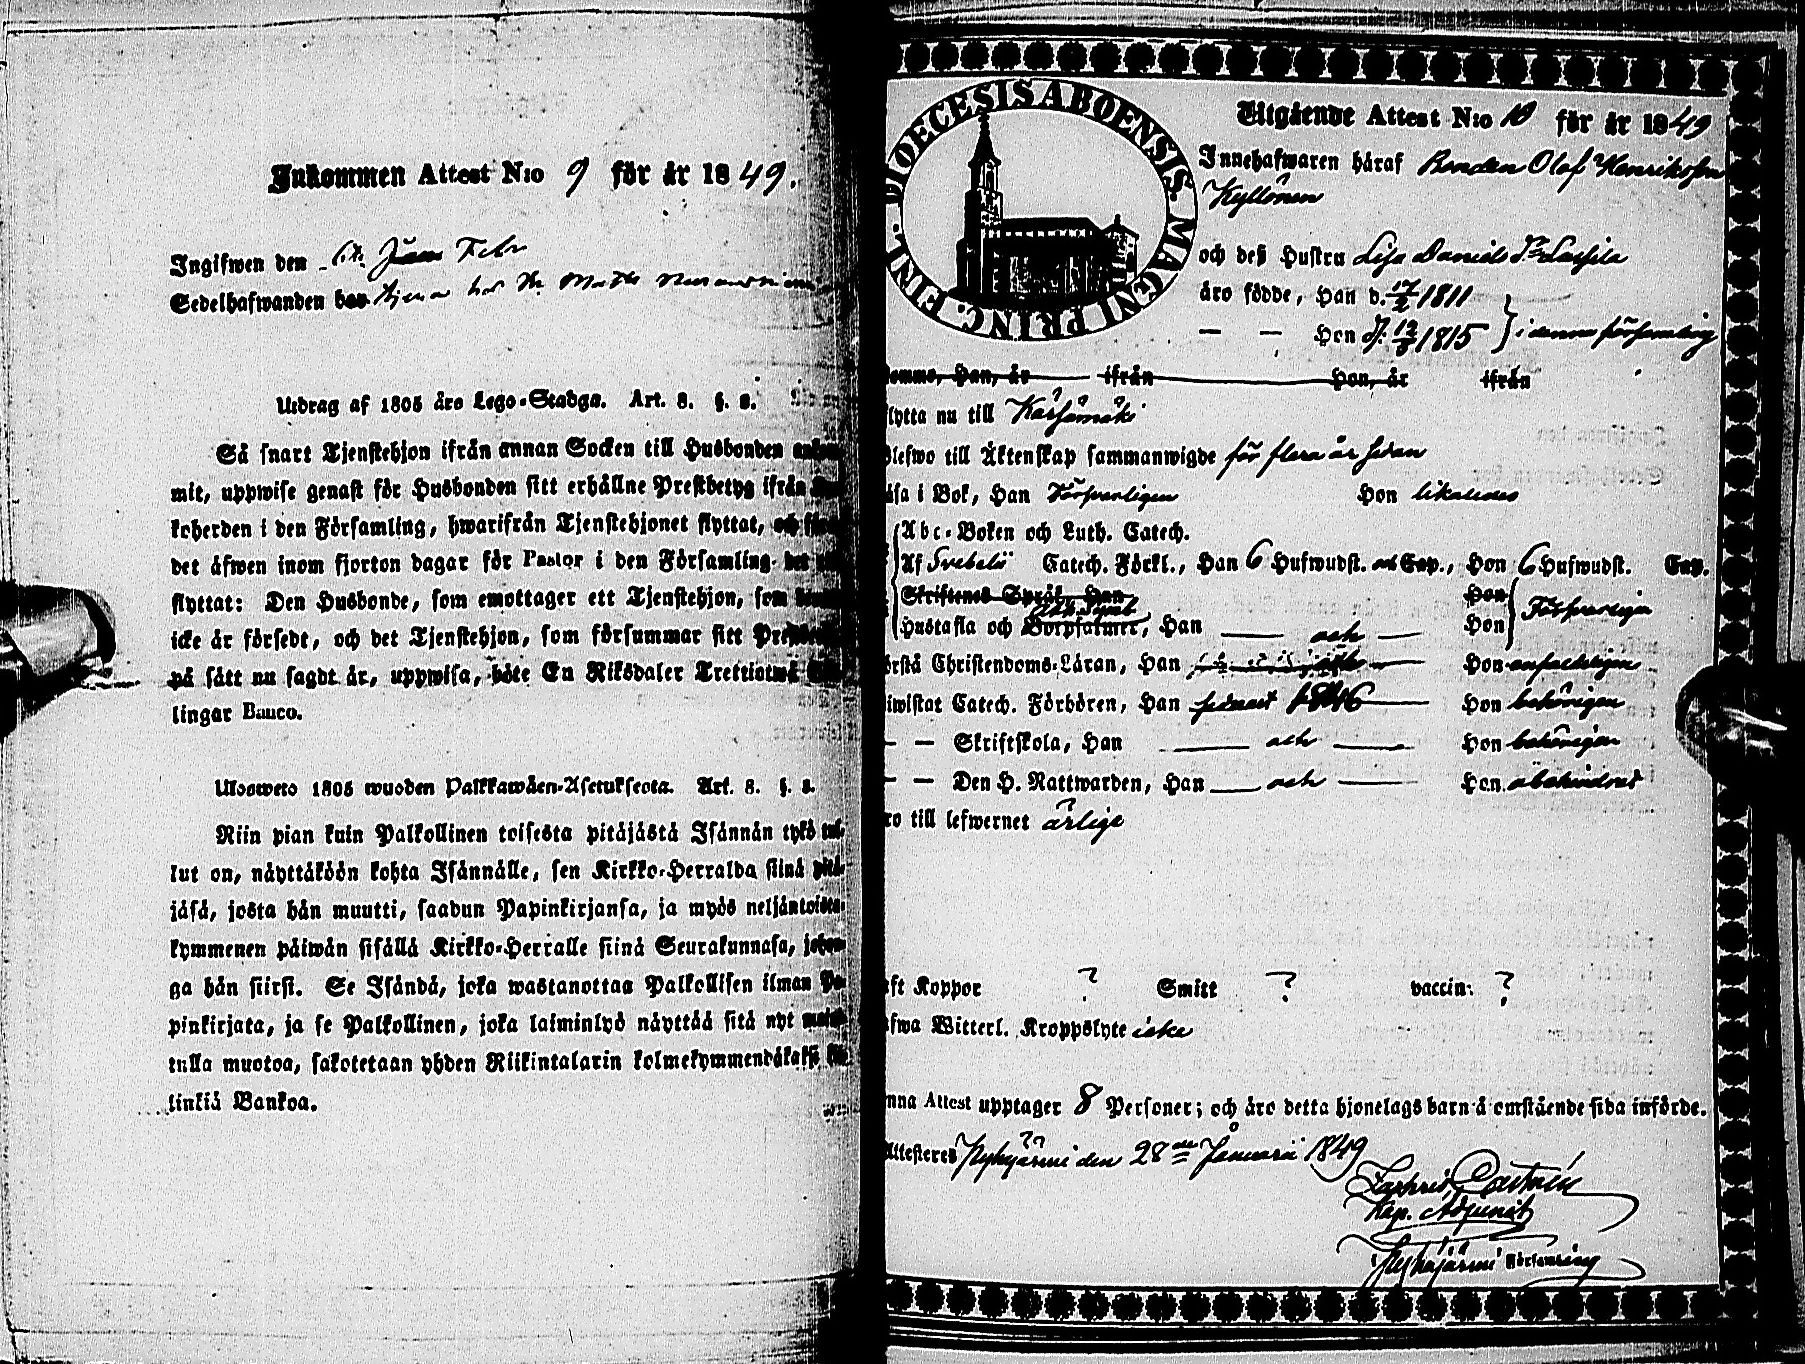 Inkommen Attest N:o 9 för år 1849.
Ingifwen den 6 Febr
Sedelhafwanden
Utdrag af 1805 års Lego-Stadga. Art. 8. §. 8.
Så snart Tjenstehjon ifrån annan Socken till Husbonden
mit, uppwise genast för Husbonden sitt erhållne Prestbetyg ifrån
koherden i den Församling, hwarifrån Tjenstehjonet flyttat, och
det äfwen inom fjorton dagar för Pastor i den Församling det
flyttat: Den Husbonde, som emottager ett Tjenstehjon, som
icke är försedt, och det Tjenstehjon, som försummar sitt
på sätt nu sagdt är, uppwisa, böte En Riksdaler Trettiotwå
lingar Banco.
Ulosweto 1805 wuoden Palkkawäen-Asetuksesta. Art. 8. §. 8.
Niin pian kuin Palkollinen toisesta pitäjästä Isännän tykö tul-
lut on, näyttäköön kohta Isännälle, sen Kirkko-Herralda siinä pitä-
jäsä, josta hän muutti, saadun Papinkirjansa, ja myös neljäntoista-
kymmenen päiwän sisällä Kirkko-Herralle siinä Seurakunnasa, johon-
ga hän siirst. Se Isändä, joka wastanottaa Palkollisen ilman Pa-
pinkirjata, ja se Palkollinen, joka laiminlyö näyttää sitä nyt
tulla muotoa, sakotetaan yhden Riikintalarin kolmekymmendäkaksi
linkiä Bankoa.
DIOECESIS ABOENSIS. MAGNI PRINC. FINL.
Utgående Attest N:o 10 för år 1849
Innehafwaren häraf Bonden Olof Henriksson
Kyllönen
och deß Hustru Lisa Daniels Dr Lassila
äro födde, Han d. 17/2 1811
— — Hon d. 12/8 1815 } i denna församling
komms, Han, år ifrån Hon, år ifrån
flytta nu till Kärsämäki
blefwo till Äktenskap sammanwigde för flera år sedan
läsa i Bok, Han Försvarligen Hon likaledes
Abc-Boken och Luth. Catech.
Af Svebelii Catech. Förkl., Han 6 Hufwudst. och Cap., Hon 6 Hufwudst. Cap.
Skriftenes Språk, Han Hon
Ath. Symb.
Hustafla och Botpsalmer, Han — och — Hon Försvarligen
förstå Christendoms-Läran, Han Hon enfaldeligen
biwistat Catech. Förhören, Han senast 1846 Hon behörigen
— — Skriftskola, Han — och — Hon behörigen
— — Den H. Nattwarden, Han — och — Hon obehindrad
äro till lefwernet ärlige
haft Koppor ? Smitt ? vaccin: ?
hafwa Witterl. Kroppslyte icke
Denna Attest upptager 8 Personer; och äro detta hjonelags barn å omstående sida införde.
Attesteres Pyhäjärvi den 28de Januarii 1849
Zachris Castrén
Kap. Adjunct
i Pyhäjärvi Församling